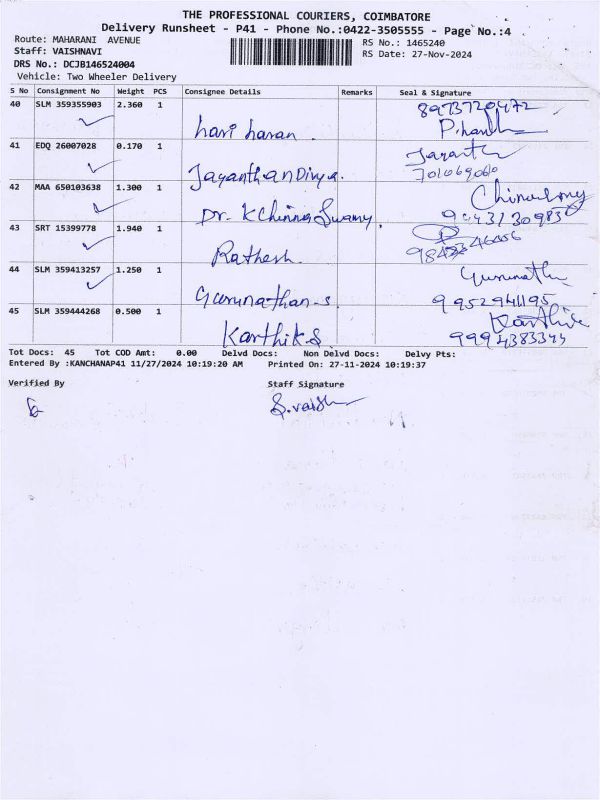 THE PROFESSIONAL COURIERS, COIMBATORE
Delivery Runsheet - P41 - Phone No.:0422-3505555 - Page No.:4
Route: MAHARANI AVENUE
RS No.: 1465240
Staff: VAISHNAVI
RS Date: 27-Nov-2024
DRS No.: DCJB146524004
Vehicle: Two Wheeler Delivery
S No Consignment No Weight PCS Consignee Details Remarks Seal & Signature
40 SLM 359355903 2.360 1 hari haran 8973720472
41 EDQ 26007028 0.170 1 Jayanthan Divya. 701069060
42 MAA 650103638 1.300 1 Dr. K Chinna Swamy,
43 SRT 15399778 1.940 1 Rathesh
44 SLM 359413257 1.250 1 Gurunathan-s 9952941195
45 SLM 359444268 0.500 1 Karthik.S Karthik
Tot Docs: 45 Tot COD Amt: 0.00 Delvd Docs: Non Delvd Docs: Delvy Pts:
Entered By :KANCHANAP41 11/27/2024 10:19:20 AM Printed On: 27-11-2024 10:19:37
Verified By Staff Signature
S.vaish